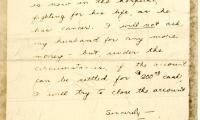 is now in the hospital
fighting for his life, as he
has cancer. I will not ask
my husband for any more
money - but under the
circumstances, if the account
can be settled for $200⁰⁰ cash,
I will try to close the account
Sincerely